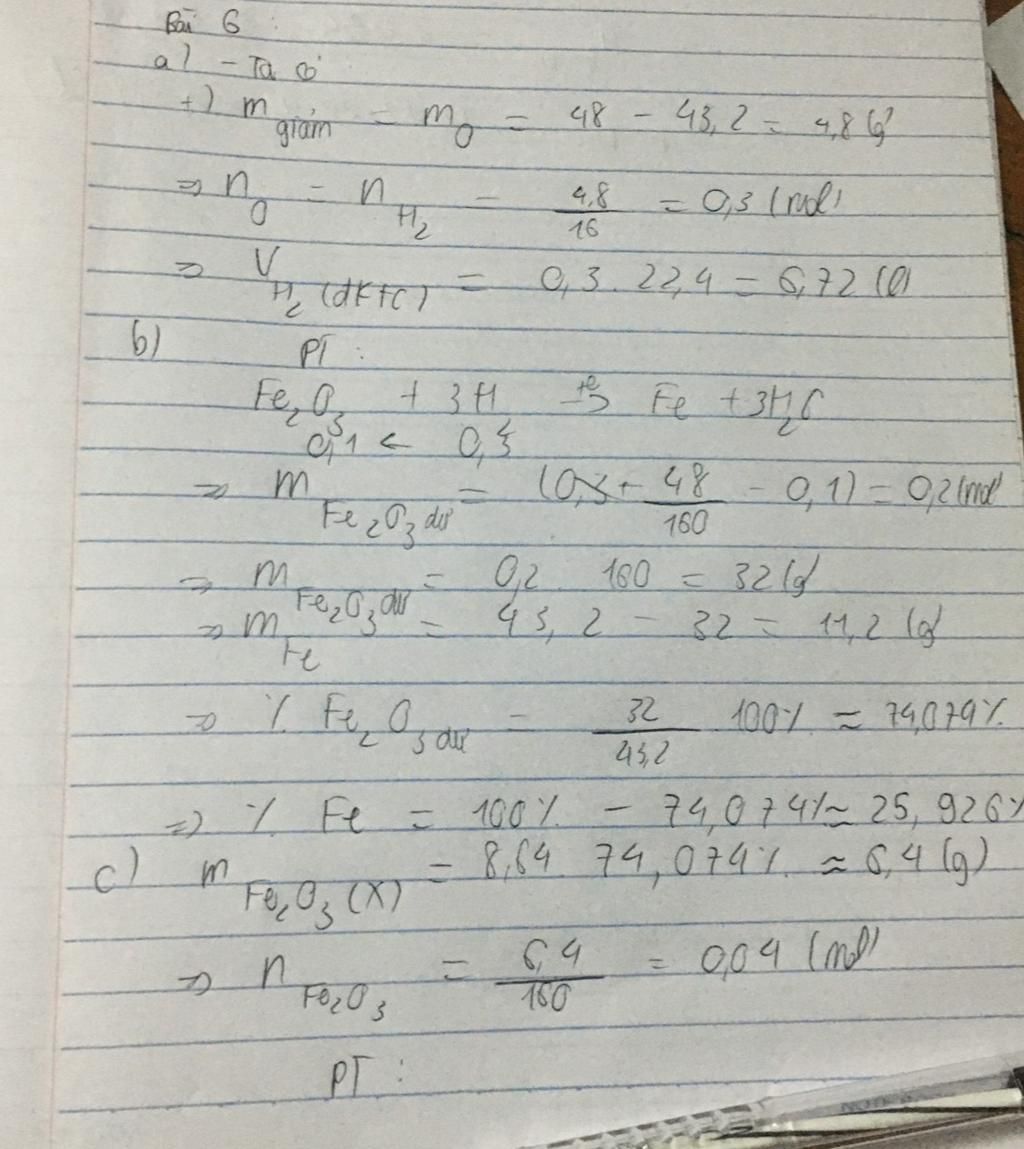 Bài 6 :
a) - Ta có
+) m giảm = m O = 48 - 43,2 = 4,8 (g)
=> n O = n H2 = 4,8/16 = 0,3 (mol)
=> V H2 (đktc) = 0,3 . 22,4 = 6,72 (l)
b) PT :
Fe2O3 + 3H to-> Fe + 3H2O
0,1 <- 0,3
=> m Fe2O3 dư = (48/160 - 0,1) = 0,2 (mol
=> m Fe2O3 dư = 0,2 160 = 32 (g)
=> m Fe = 43,2 - 32 = 11,2 (g)
=> % Fe2O3 dư = 32/43,2 100% ≈ 74,074%
=> % Fe = 100% - 74,074% ≈ 25,926%
c) m Fe2O3 (X) = 8,64 74,074% ≈ 6,4 (g)
=> n Fe2O3 = 6,4/160 = 0,04 (mol)
PT :